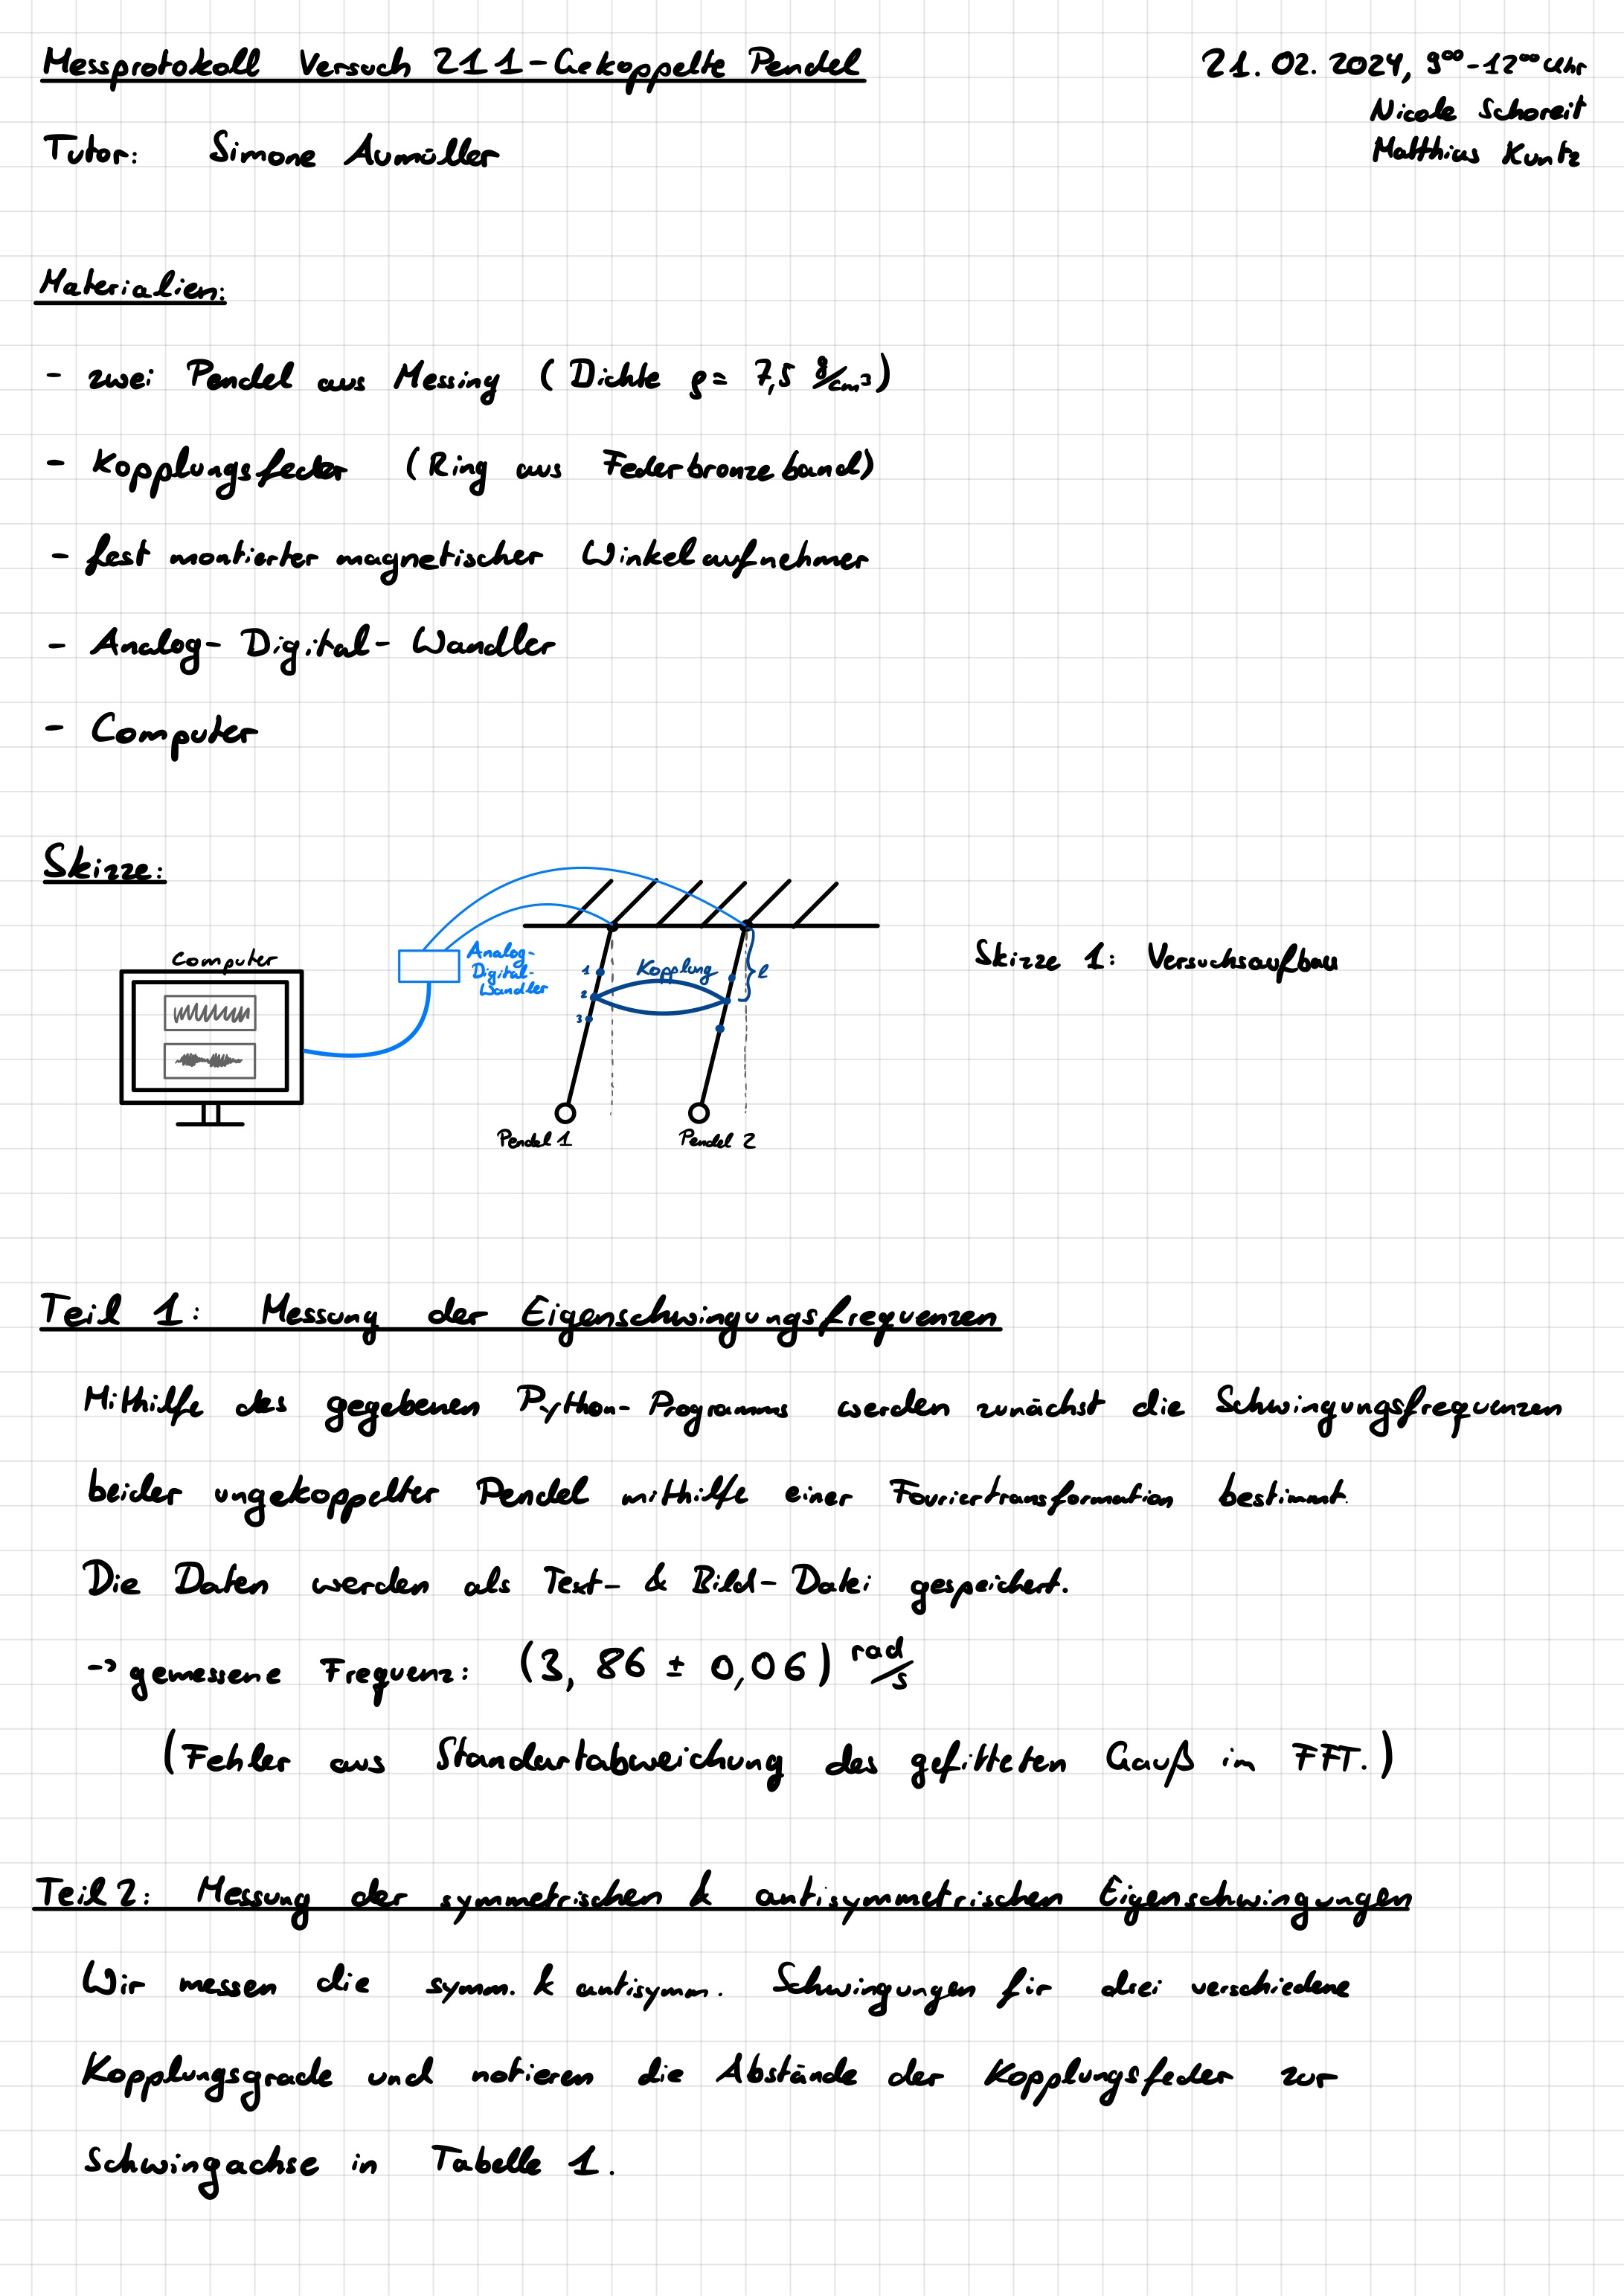 Messprotokoll Versuch 211 - Gekoppelte Pendel
21.02.2024, 9⁰⁰-12⁰⁰ Uhr
Nicole Schoreit
Matthias Kuntz
Tutor: Simone Aumüller
Materialien:
- zwei Pendel aus Messing (Dichte ρ = 7,5 g/cm³)
- Kopplungsfeder (Ring aus Federbronzeband)
- fest montierter magnetischer Winkelaufnehmer
- Analog-Digital-Wandler
- Computer
Skizze:
Computer
Analog-
Digital-
Wandler
1
2
3
Kopplung
l
Pendel 1
Pendel 2
Skizze 1: Versuchsaufbau
Teil 1: Messung der Eigenschwingungsfrequenzen
Mithilfe des gegebenen Python-Programms werden zunächst die Schwingungsfrequenzen
beider ungekoppelter Pendel mithilfe einer Fouriertransformation bestimmt.
Die Daten werden als Text- & Bild-Datei gespeichert.
→ gemessene Frequenz: (3,86 ± 0,06) rad/s
(Fehler aus Standartabweichung des gefitteten Gauß im FFT.)
Teil 2: Messung der symmetrischen & antisymmetrischen Eigenschwingungen
Wir messen die symm. & antisymm. Schwingungen für drei verschiedene
Kopplungsgrade und notieren die Abstände der Kopplungsfeder zur
Schwingachse in Tabelle 1.